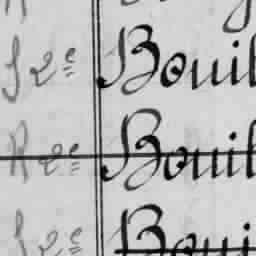 S 2e Bouil
R 2e Bouil
S 2e Boui